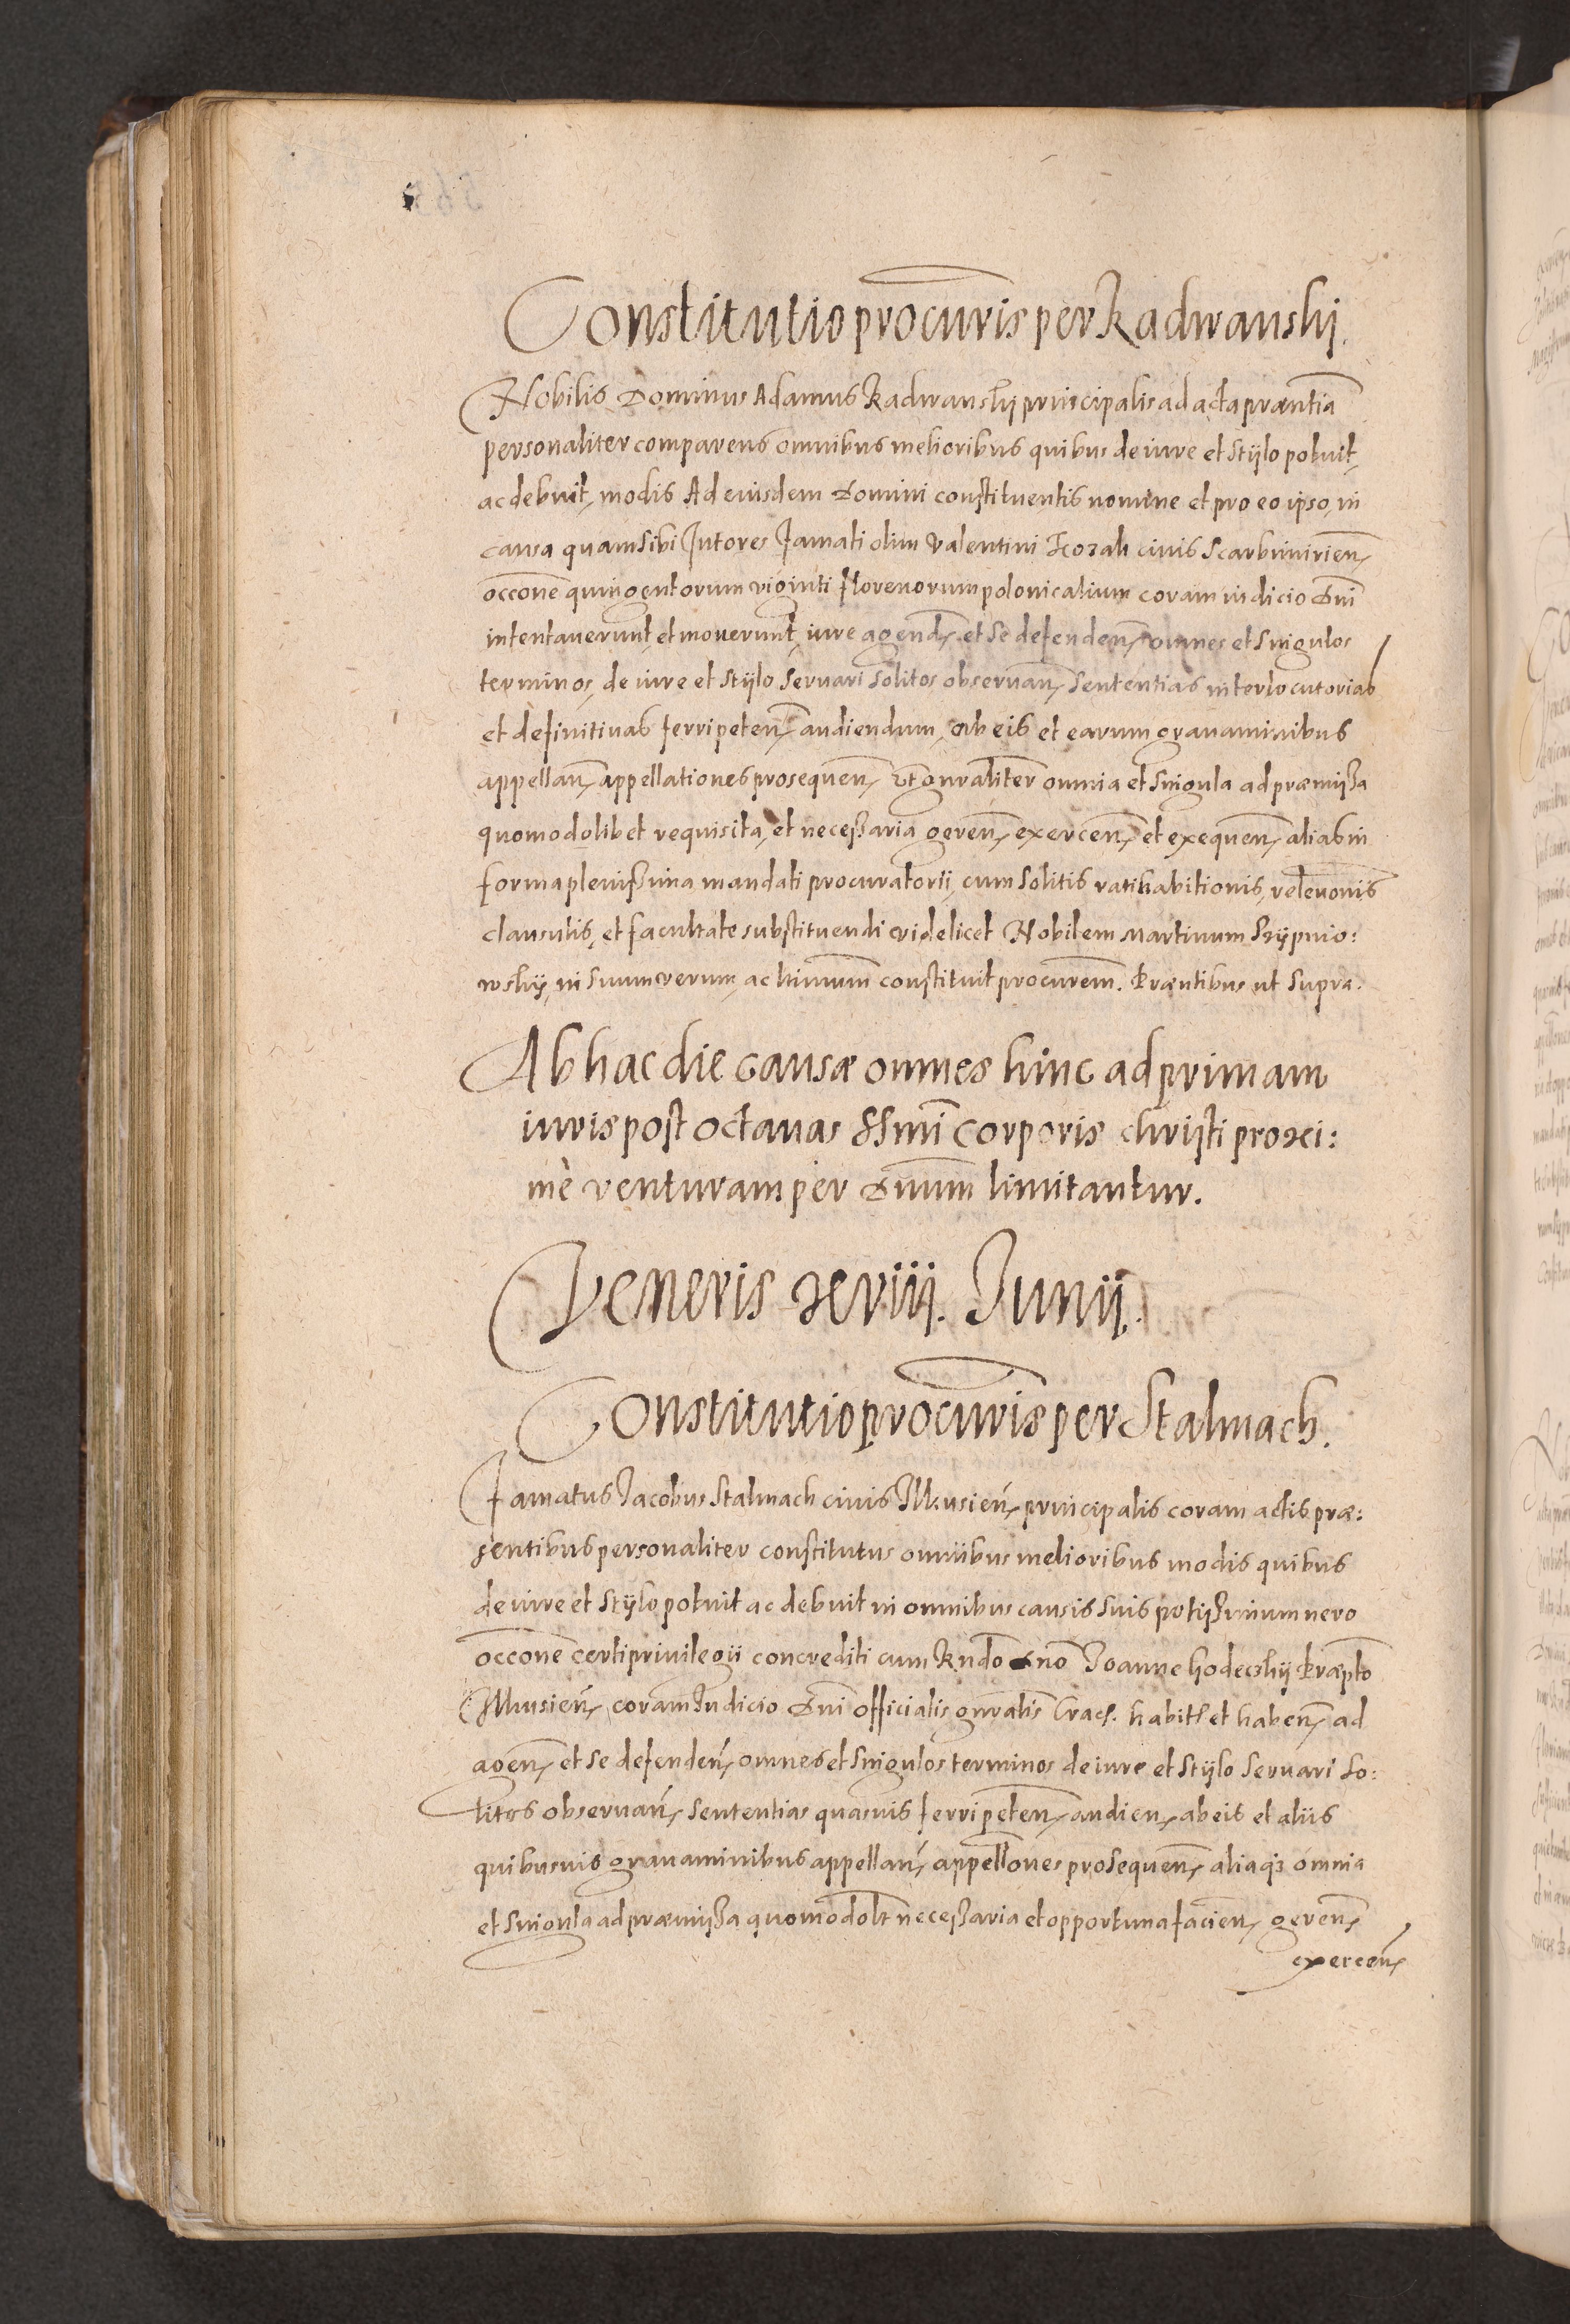 Constitutio procuris per Radwanskij.
Nobilis Dominus Adamus Radwanskij principalis ad acta præntia
personaliter comparens omnibus melioribus quibus de iure et stÿlo potuit,
ac debuit, modis Ad eiusdem Domini constituentis nomine et pro eo ipso, in
causa quam sibi Tutores Famati olim Valentini civis
occone quingentorum viginti florenorum polonicalium coram iudicio Dni
intentaverunt, et moverunt, iure agend, et se defenden, omnes et singulos
terminos, de iure et stÿlo servari solitos observan, sententias interlocutorias
et definitivas ferri peten, audiendum, ab eis et earum gravaminibus
appellan, appellationes prosequen, Et gnraliter omnia et singula ad præmissa
quomodolibet requisita, et necessaria geren, exercen, et exequen, alias in
forma plenissima mandati procuratorii, cum solitis ratihabitionis, relevonis
clausulis, et facultate substituendi videlicet Nobilem Martinum
wskÿ, in suum verum, ac ltimum constituit procurem. Præntibus ut supra.
Ab hac die causæ omnes hinc ad primam
iuris post octavas SSmi Corporis Christi proxi:
mè venturam per Dnum limitantur.
Veneris xviii. Junii.
Constitutio procuris per Stalmach.
Famatus Jacobus Stalmach civis Ilkusien, principalis coram actis præ:
sentibus personaliter constitutus omnibus melioribus modis quibus
de iure et stÿlo potuit ac debuit in omnibus causis suis potissimum vero
occone certi privilegii concrediti cum Rndo Dno Joanne Hodeckij Præpto
Ilkusien, coram Judicio Dni officialis gnralis Crac. habit et haben, ad
agen, et se defenden, omnes et singulos terminos de iure et stÿlo servari so:
litos observan, sententias quasvis ferri peten, audien, ab eis et aliis
quibusvis gravaminibus appellan, appellones prosequen, aliaq3 omnia
et singula ad præmissa quomodolt necessaria et opportuna facien, geren,
exercen,